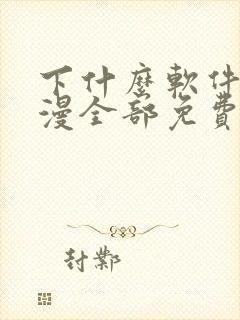 下什麽軟件
漫全部免費
封鄴